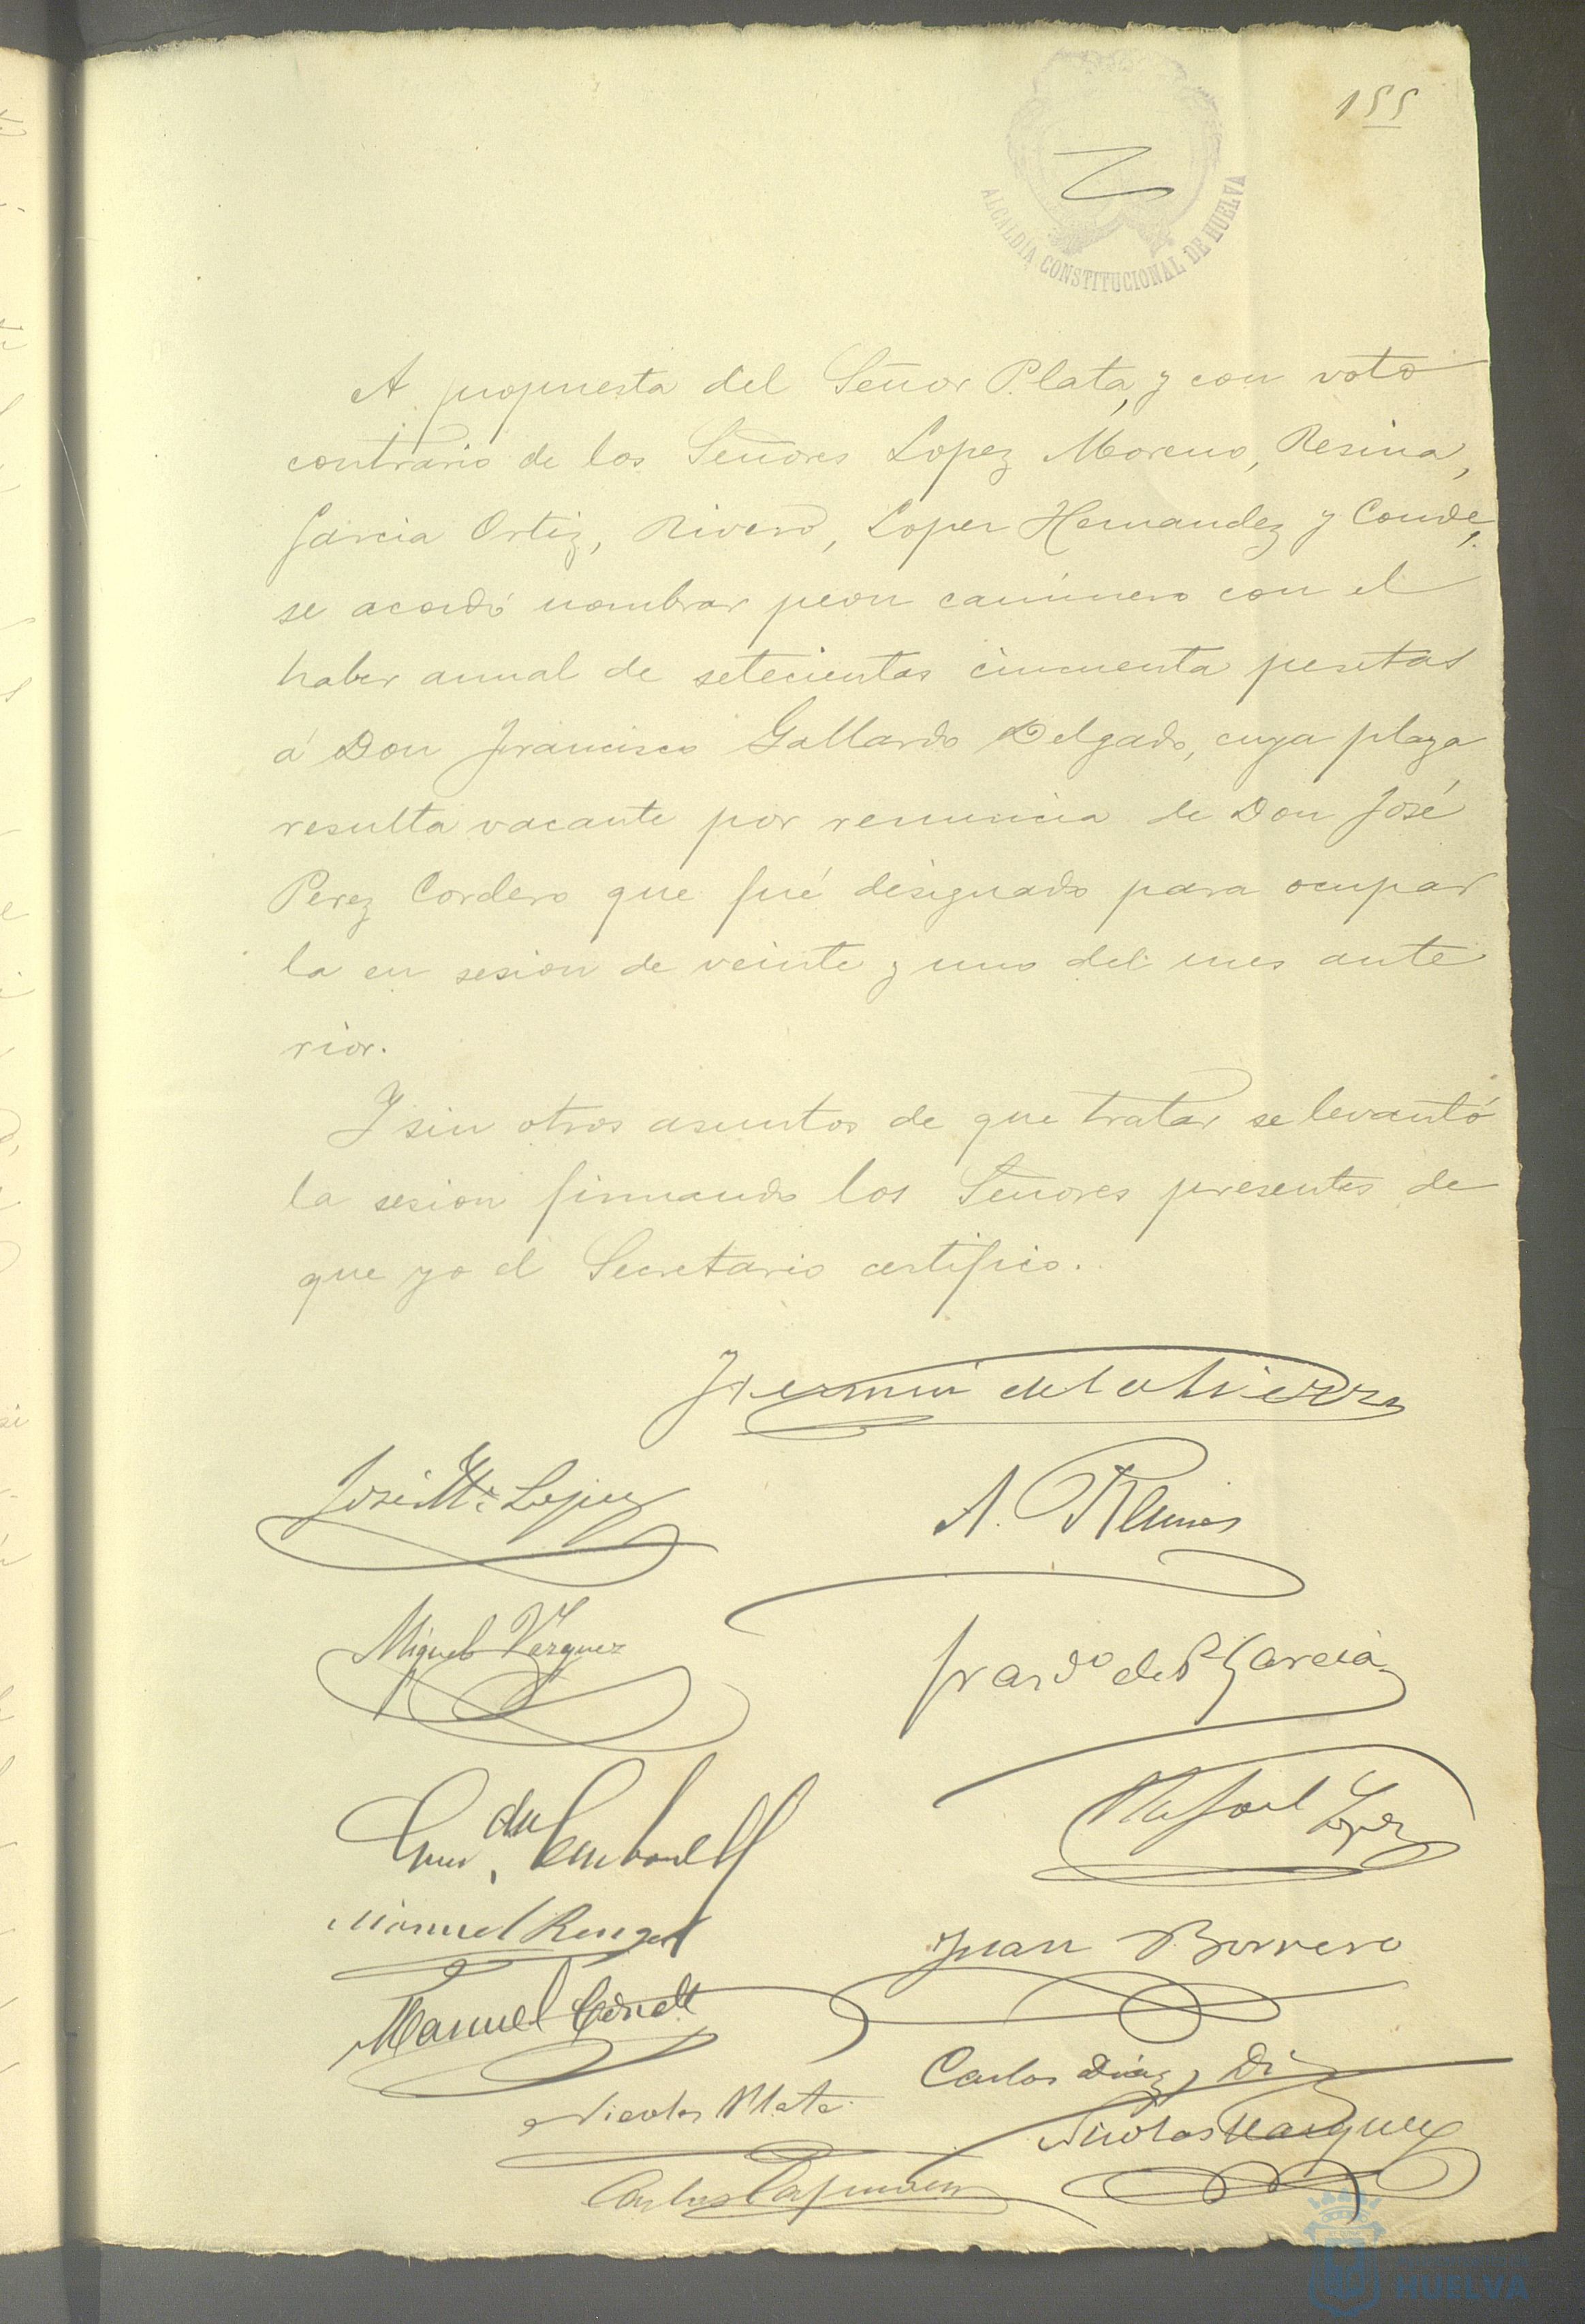 155
ALCALDIA CONSTITUCIONAL DE HUELVA
A propuesta del Señor Plata, y con voto
contrario de los Señores Lopez Moreno, Resina,
Garcia Ortiz, Rivero, Lopez Hernandez y Conde,
se acordó nombrar peon caminero con el
haber anual de setecientas cincuenta pesetas
á Don Francisco Gallardo Delgado, cuya plaza
resulta vacante por renuncia de Don José
Perez Cordero que fué designado para ocupar
la en sesion de veinte y uno del mes ante
rior.
Y sin otros asuntos de que tratar se levantó
la sesion firmando los Señores presentes de
que yo el Secretario certifico.
José Mª Lopez
A.
Miguel Vazquez
de García
Rafael Lopez
Manuel Rengel
Juan Borrero
Manuel
Carlos Diaz y
Nicolas Plata
Nicolas Vazquez
Carlos
HUELVA